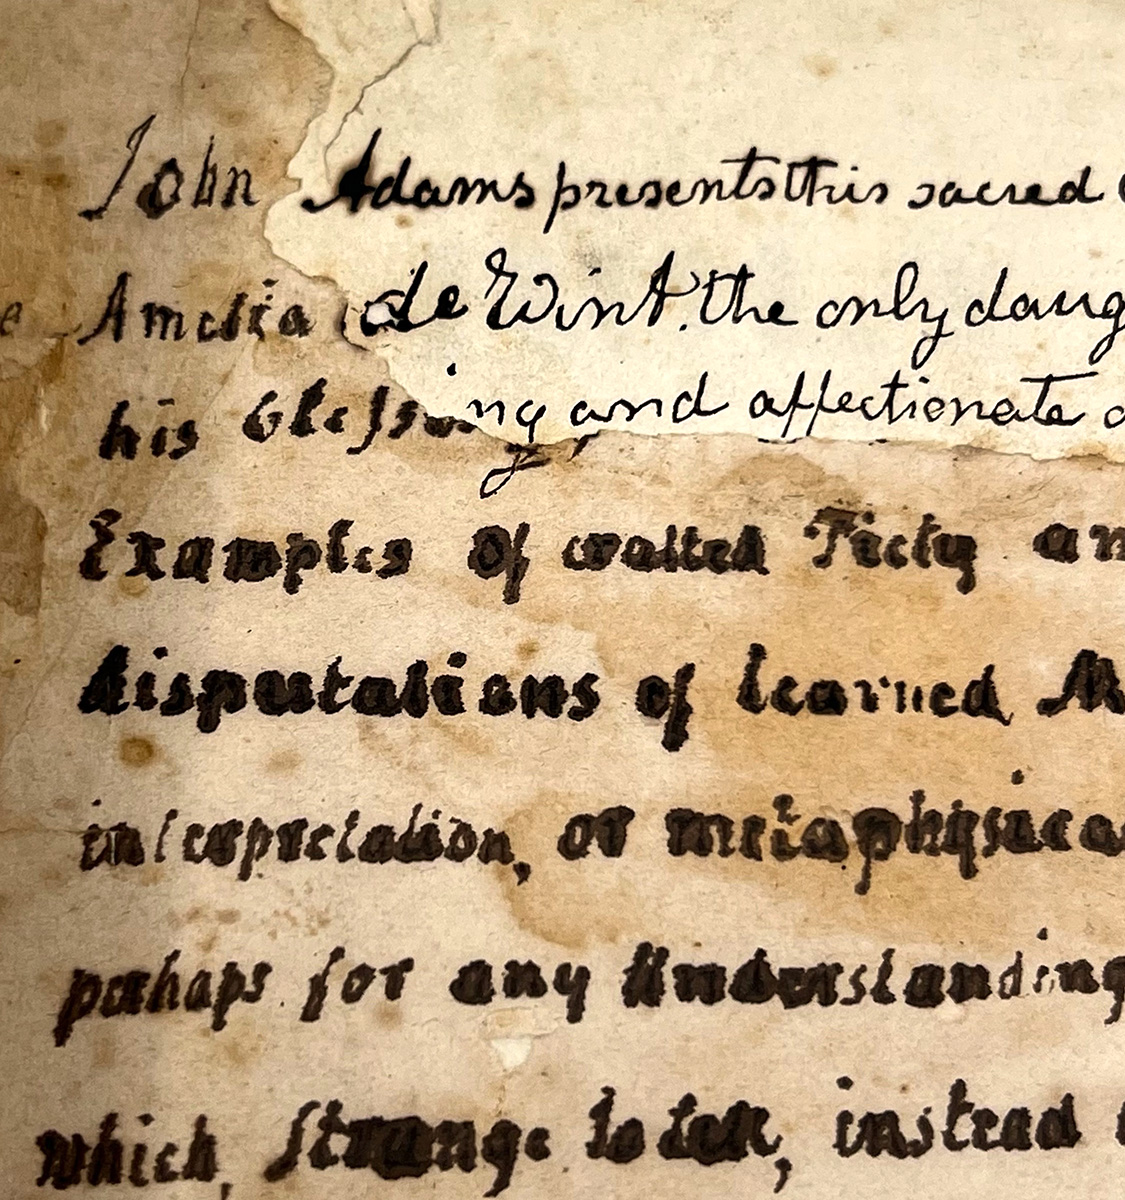 John Adams presents this sacred
Amelia de Wint. the only daug
his blessing and affectionate
Examples of exalted Piety an
disputations of learned M
interpretation, or metaphysica
perhaps for any Understanding
which, strange to tell, instead